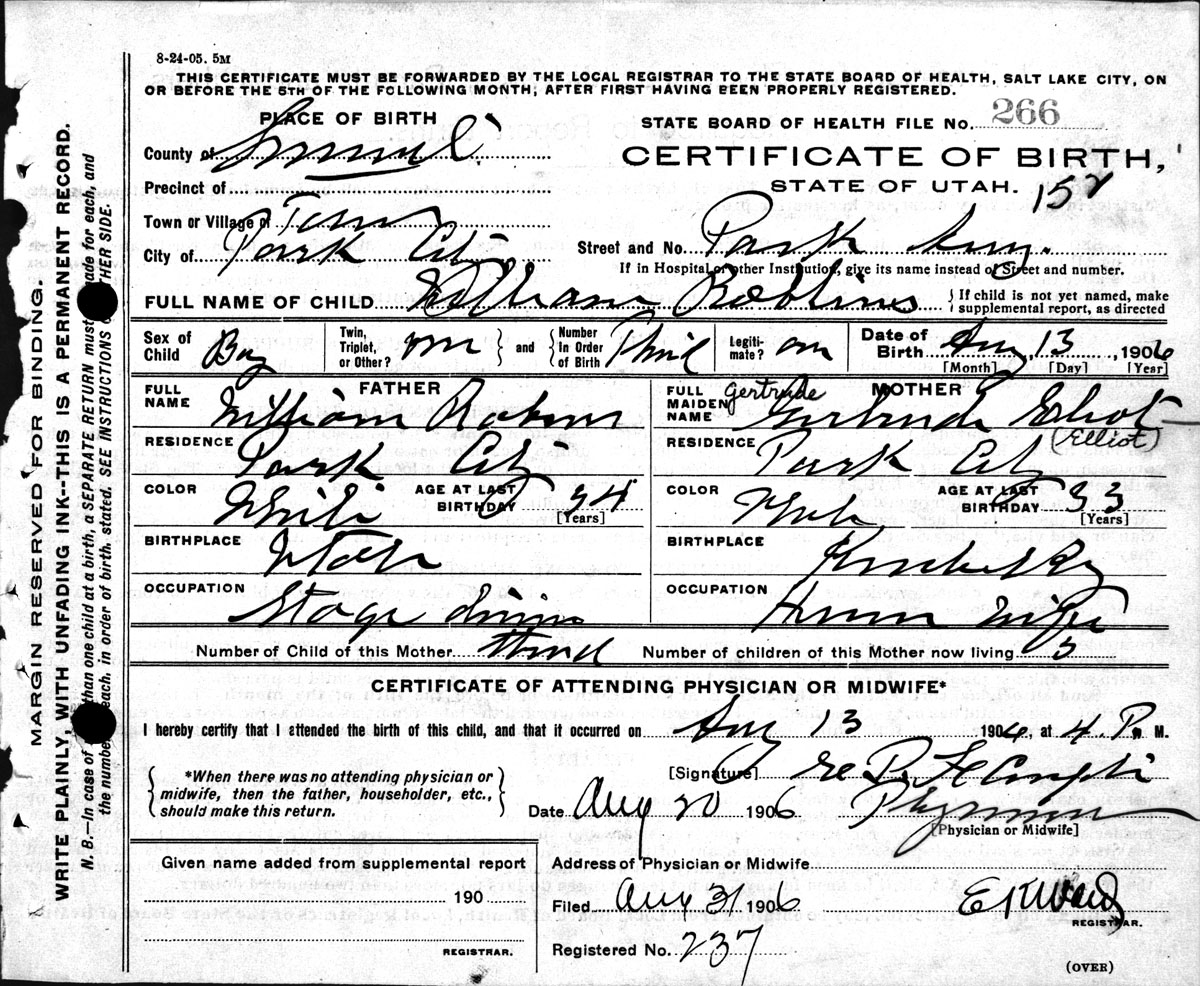 8-24-05. 5M
THIS CERTIFICATE MUST BE FORWARDED BY THE LOCAL REGISTRAR TO THE STATE BOARD OF HEALTH, SALT LAKE CITY, ON
OR BEFORE THE 5TH OF THE FOLLOWING MONTH; AFTER FIRST HAVING BEEN PROPERLY REGISTERED.
PLACE OF BIRTH
STATE BOARD OF HEALTH FILE No. 266
County of Summit
CERTIFICATE OF BIRTH,
Precinct of
STATE OF UTAH. 152
Town or Village of
City of Park City
Street and No. Park Ave.
If in Hospital or other Institution, give its name instead of Street and number.
FULL NAME OF CHILD
If child is not yet named, make
supplemental report, as directed
Sex of Child Boy
Twin, Triplet, or Other?
and
Number In Order of Birth
Legitimate?
Date of Birth Aug 13, 1906
[Month] [Day] [Year]
FULL NAME FATHER
William Robins
FULL MAIDEN NAME MOTHER
Gertrude
Gertrude Eliot
(Elliot)
RESIDENCE Park City
RESIDENCE Park City
COLOR White
AGE AT LAST BIRTHDAY 34
[Years]
COLOR
AGE AT LAST BIRTHDAY 33
[Years]
BIRTHPLACE Utah
BIRTHPLACE
OCCUPATION Stage
OCCUPATION Wife
Number of Child of this Mother Third
Number of children of this Mother now living 3
CERTIFICATE OF ATTENDING PHYSICIAN OR MIDWIFE*
I hereby certify that I attended the birth of this child, and that it occurred on Aug 13 1906, at 4 P. M.
*When there was no attending physician or
midwife, then the father, householder, etc.,
should make this return.
[Signature]
Date Aug 20 1906
Physician
[Physician or Midwife]
Given name added from supplemental report
190
REGISTRAR.
Address of Physician or Midwife
Filed Aug 31 1906
REGISTRAR.
Registered No. 237
(OVER)
MARGIN RESERVED FOR BINDING.
WRITE PLAINLY, WITH UNFADING INK--THIS IS A PERMANENT RECORD.
N. B.—In case of than one child at a birth, a SEPARATE RETURN must made for each, and
the number each, in order of birth, stated. SEE INSTRUCTIONS HER SIDE.